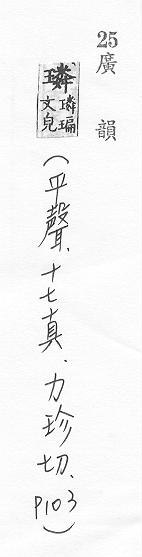 25廣韻
璘璘㻞文皃
(平聲、十七真.力珍切、P103)